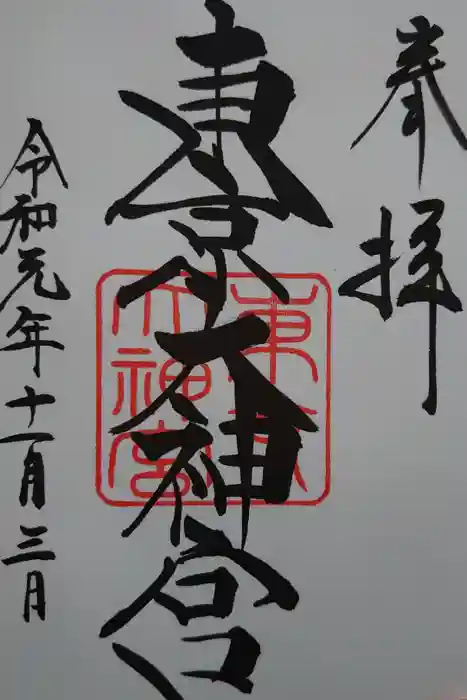 奉拝
東京大神宮
令和元年十一月三日
東京
大神宮